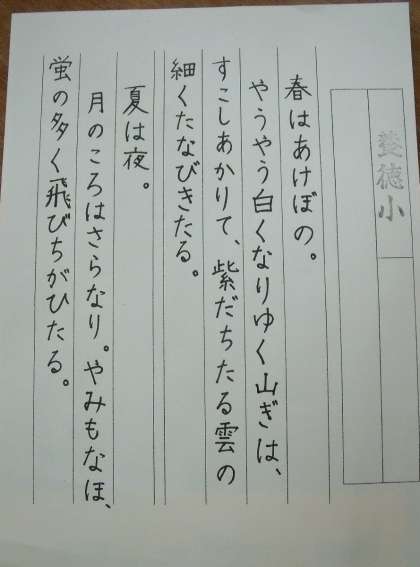 養徳小
春はあけぼの。
やうやう白くなりゆく山ぎは、
すこしあかりて、紫だちたる雲の
細くたなびきたる。
夏は夜。
月のころはさらなり。やみもなほ、
蛍の多く飛びちがひたる。